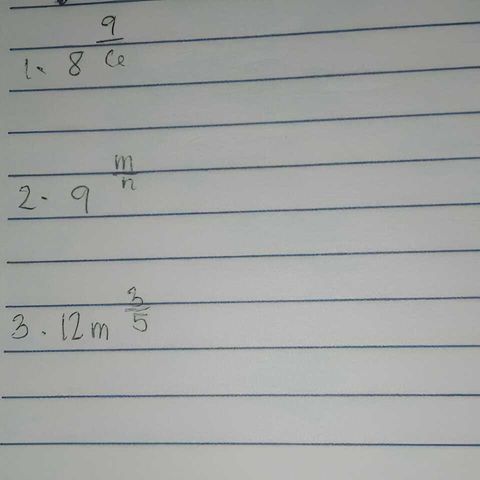 1. 8^(9/Ce)
2. 9^(m/n)
3. 12m^(3/5)